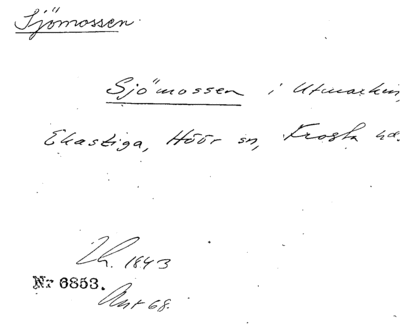 Sjömossen.
Sjömossen i Utmarken,
Ekastiga, Höör sn, Frosta hd.
Lh. 1843
Nr 6853.
Ant 68.